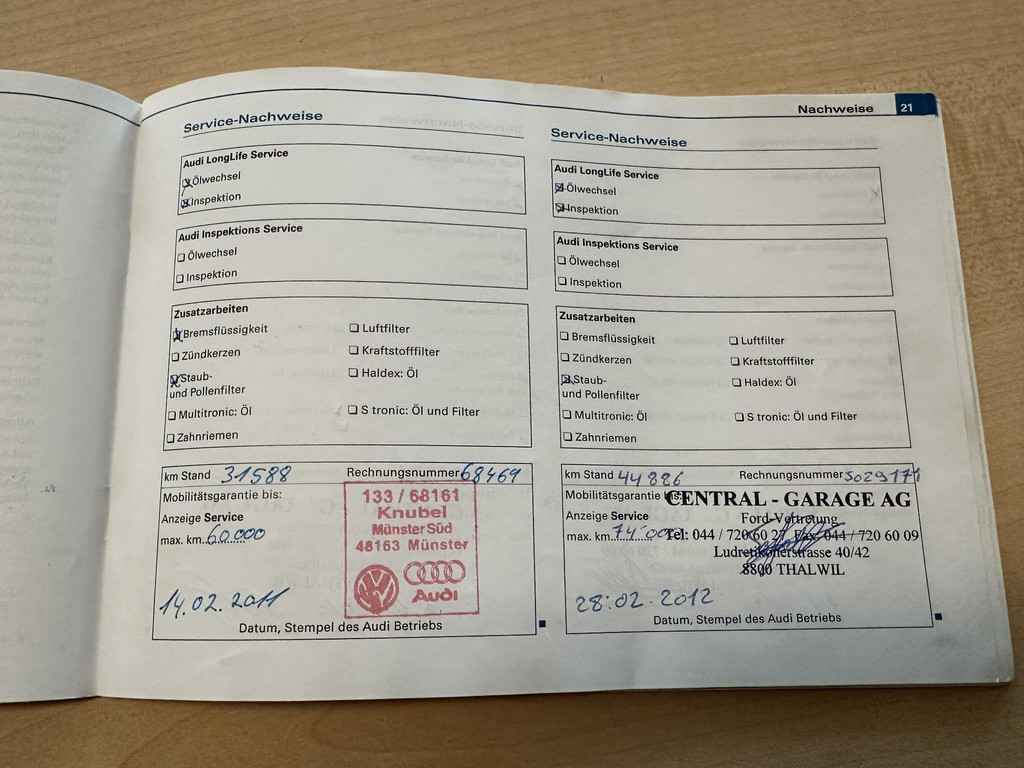 Nachweise 21
Service-Nachweise
Audi LongLife Service
Ölwechsel
Inspektion
Audi Inspektions Service
Ölwechsel
Inspektion
Zusatzarbeiten
Bremsflüssigkeit
Luftfilter
Zündkerzen
Kraftstofffilter
Staub-
und Pollenfilter
Haldex: Öl
Multitronic: Öl
S tronic: Öl und Filter
Zahnriemen
km Stand 31588 Rechnungsnummer 68469
Mobilitätsgarantie bis:
Anzeige Service
max. km 60.000
133 / 68161
Knubel
Münster Süd
48163 Münster
Audi
14.02.2011
Datum, Stempel des Audi Betriebs
Service-Nachweise
Audi LongLife Service
Ölwechsel
Inspektion
Audi Inspektions Service
Ölwechsel
Inspektion
Zusatzarbeiten
Bremsflüssigkeit
Luftfilter
Zündkerzen
Kraftstofffilter
Staub-
und Pollenfilter
Haldex: Öl
Multitronic: Öl
S tronic: Öl und Filter
Zahnriemen
km Stand 44886 Rechnungsnummer 5029171
Mobilitätsgarantie bis:
Anzeige Service
max. km 74'000
CENTRAL - GARAGE AG
Ford-Vertretung
Tel: 044 / 720 60 27 Fax: 044 / 720 60 09
Ludretikonerstrasse 40/42
8800 THALWIL
28.02.2012
Datum, Stempel des Audi Betriebs